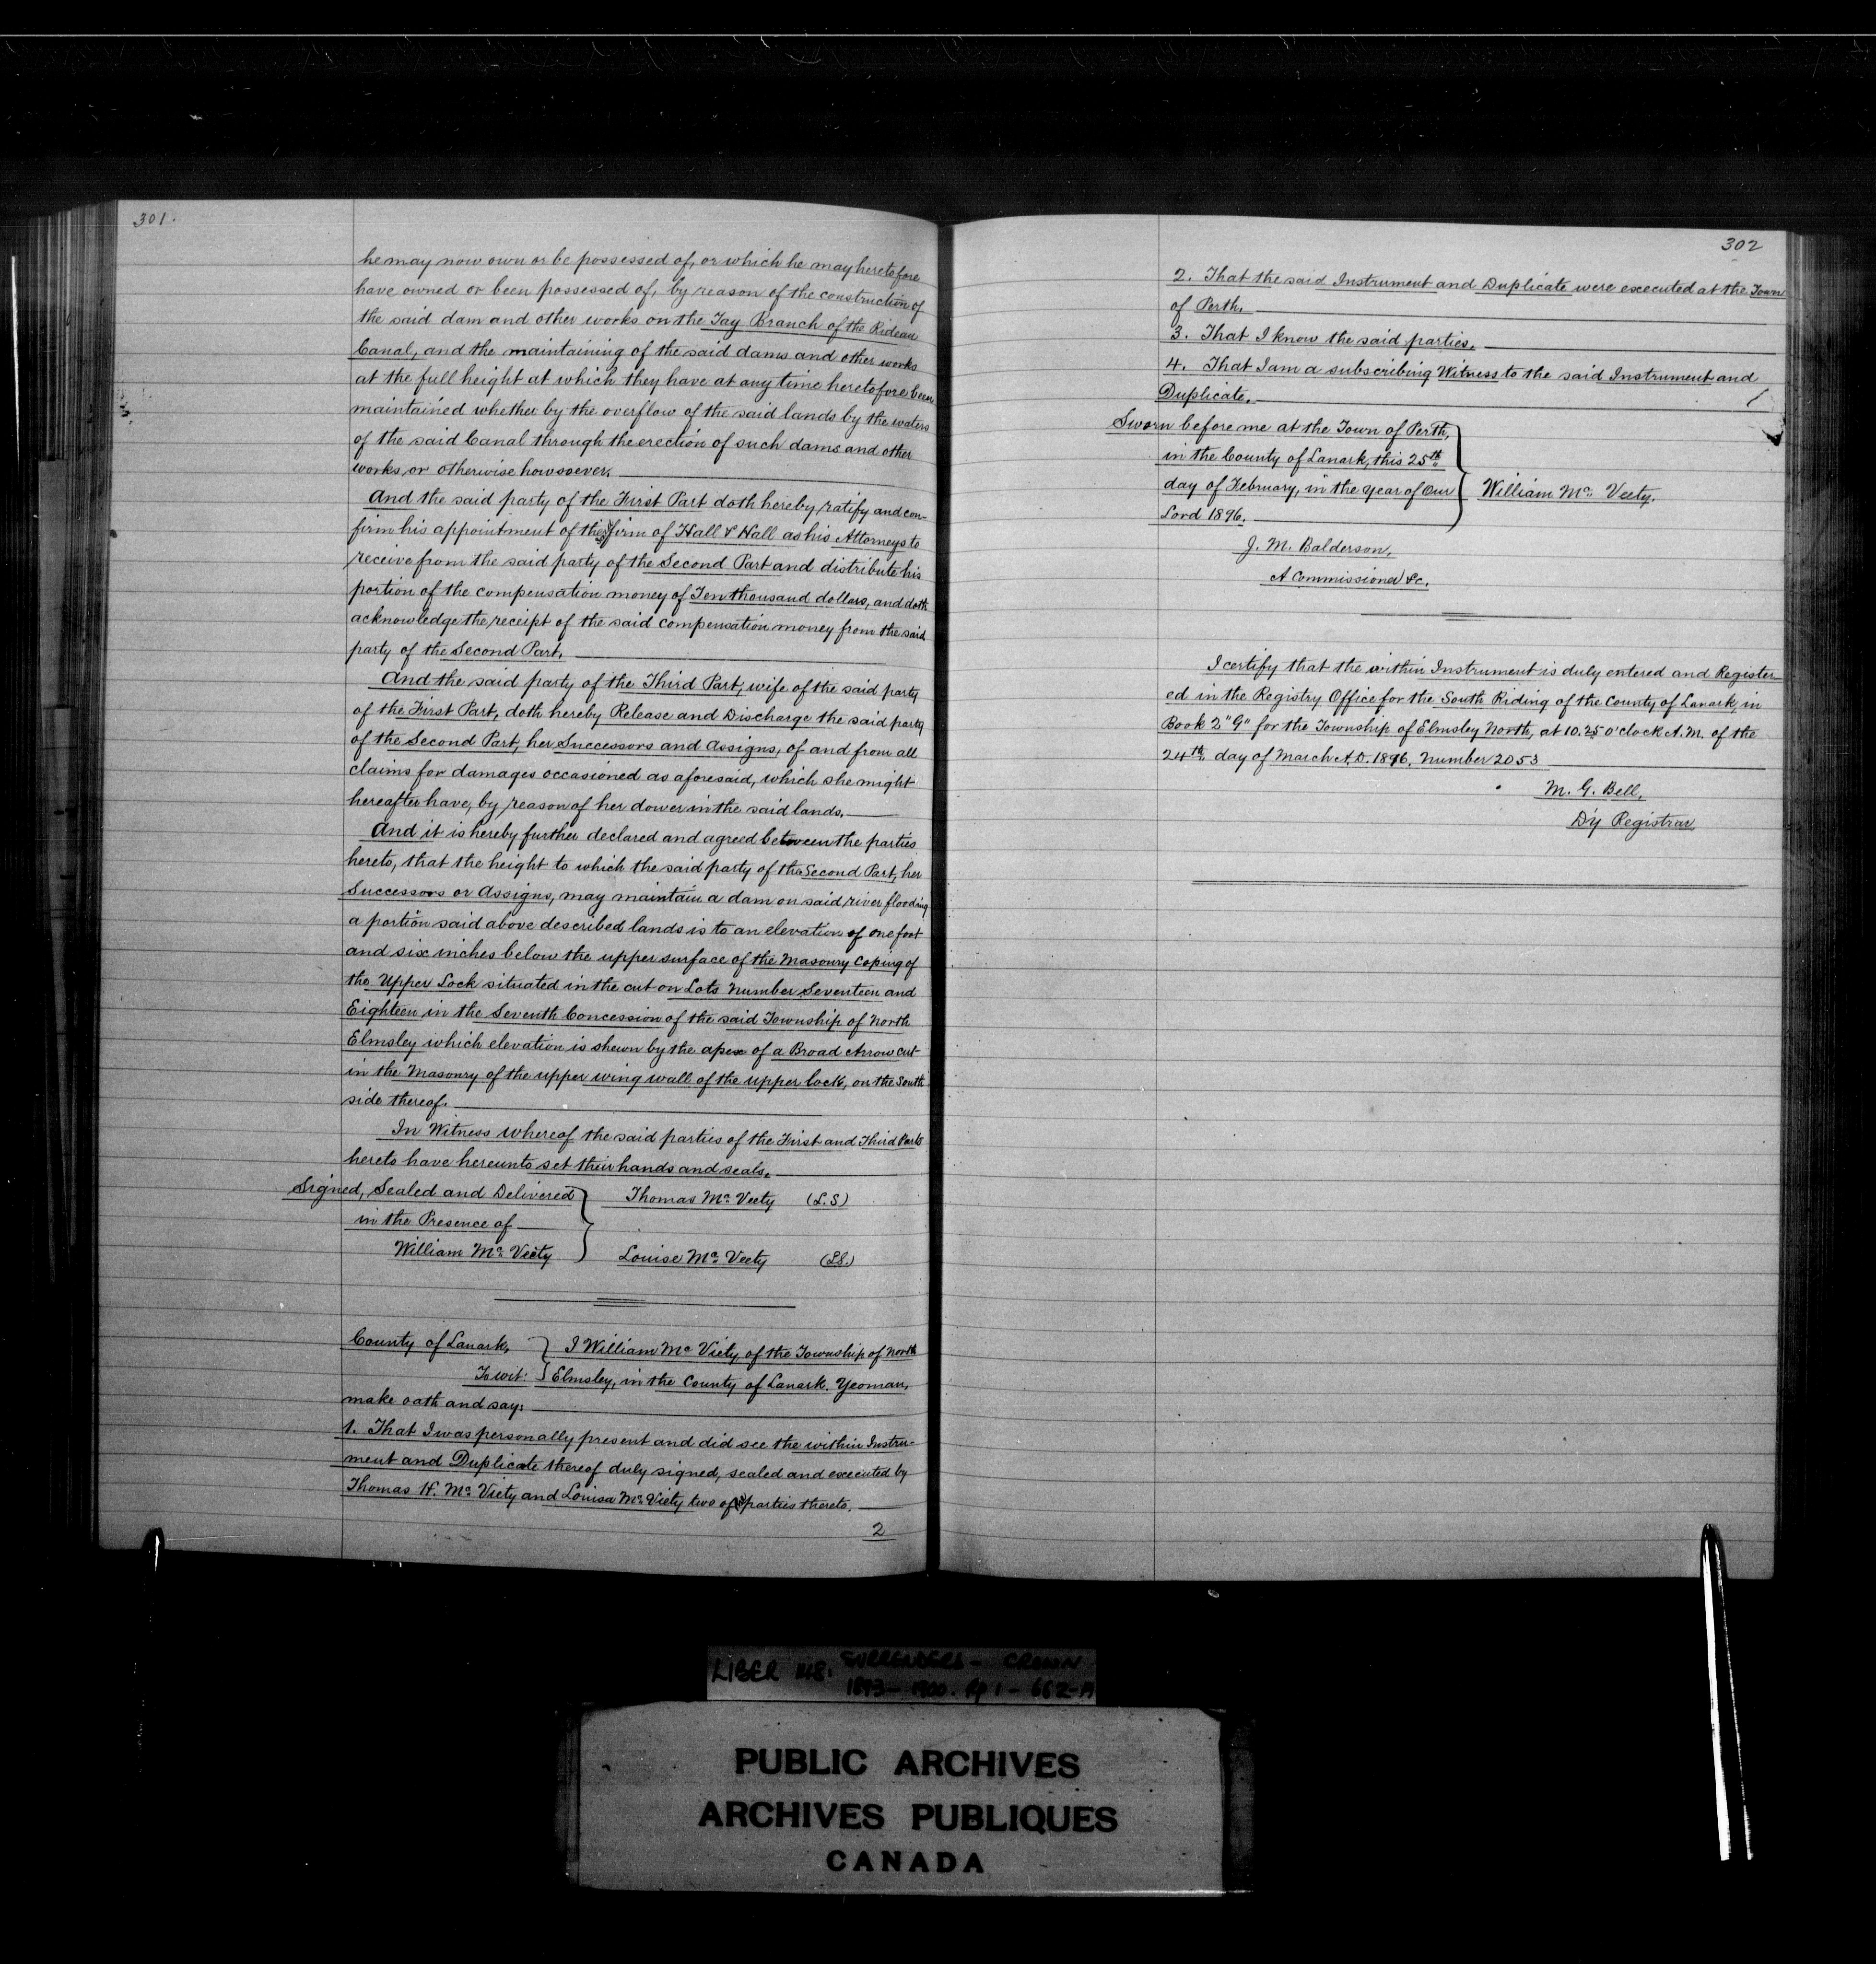 301.
he may now own or be possessed of, or which he may heretofore
have owned or been possessed of, by reason of the construction of
the said dam and other works on the Tay Branch of the Rideau
Canal, and the maintaining of the said dams and other works
at the full height at which they have at any time heretofore been
maintained whether by the overflow of the said lands by the waters
of the said Canal through the erection of such dams and other
works or otherwise howsoever.
And the said party of the First Part doth hereby ratify and con-
firm his appointment of the firm of Hall & Hall as his Attorneys to
receive from the said party of the Second Part and distribute his
portion of the compensation money of Ten thousand dollars, and doth
acknowledge the receipt of the said compensation money from the said
party of the Second Part.
And the said party of the Third Part, wife of the said party
of the First Part, doth hereby Release and Discharge the said party
of the Second Part, her Successors and Assigns, of and from all
claims for damages occasioned as aforesaid, which she might
hereafter have, by reason of her dower in the said lands.
And it is hereby further declared and agreed between the parties
hereto, that the height to which the said party of the Second Part, her
Successors or Assigns, may maintain a dam on said river flooding
a portion said above described lands is to an elevation of one foot
and six inches below the upper surface of the Masonry Coping of
the Upper Lock situated in the cut on Lots Number Seventeen and
Eighteen in the Seventh Concession of the said Township of North
Elmsley which elevation is shewn by the apex of a Broad Arrow cut
in the Masonry of the upper wing wall of the upper lock, on the South
side thereof.
In Witness whereof the said parties of the First and Third Parts
hereto have hereunto set their hands and seals.
Signed, Sealed and Delivered } Thomas Mc Veety (L.S)
in the Presence of
William Mc Viety } Louise Mc Veety (LS.)
County of Lanark, } I William Mc Viety, of the Township of North
To wit: } Elmsley, in the County of Lanark. Yeoman,
make oath and say:
1. That I was personally present and did see the within Instru-
ment and Duplicate thereof duly signed, sealed and executed by
Thomas H. Mc Viety and Louisa Mc Viety two of the parties thereto.
2
302
2. That the said Instrument and Duplicate were executed at the Town
of Perth.
3. That I know the said parties.
4. That I am a subscribing Witness to the said Instrument and
Duplicate.
Sworn before me at the Town of Perth,
in the County of Lanark, this 25th
day of February, in the year of Our } William Mc Veety.
Lord 1896.
J. M. Balderson,
A Commissioner &c.
I certify that the within Instrument is duly entered and Register-
ed in the Registry Office for the South Riding of the County of Lanark, in
Book 2 "G" for the Township of Elmsley North, at 10.25 o'clock A.M. of the
24th day of March A.D. 1896. Number 2053
M. G. Bell,
D'y Registrar
LIBER 118: SURRENDERS - CROWN
1893 - 1900. pp 1 - 662-A
PUBLIC ARCHIVES
ARCHIVES PUBLIQUES
CANADA